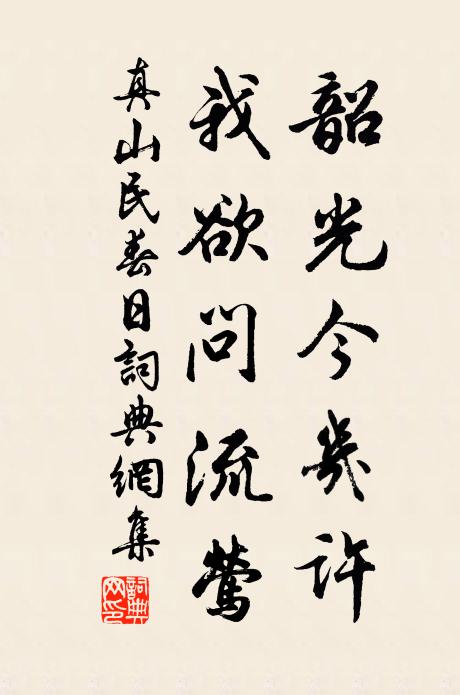 韶光今幾許
我欲問流鶯
真山民春日詞典網集
詞典網印